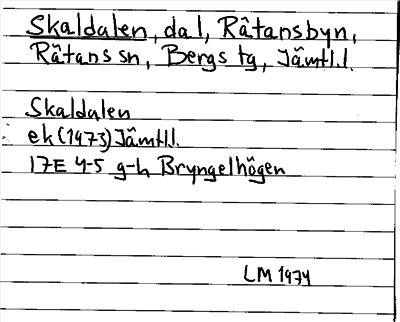 Skaldalen, dal, Råtansbyn,
Råtans sn, Bergs tg, Jämtl.l.
Skaldalen
ek (1973) Jämtl.l.
17E 4-5 g-h Bryngelhögen
LM 1974